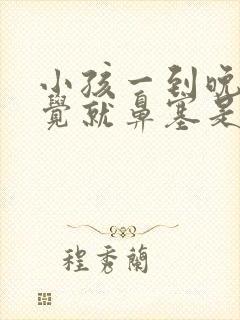 小孩一到晚
覺就鼻塞是
程秀蘭